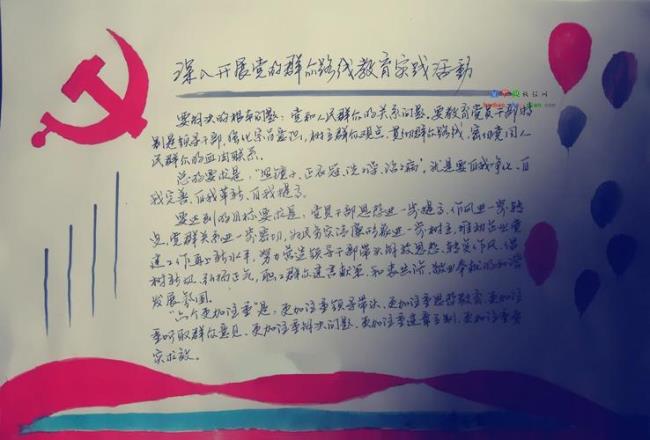 深入开展党的群众路线教育实践活动
要解决的根本问题：党和人民群众的关系问题。要教育党员干部特
别是领导干部，强化宗旨意识，树立群众观点，贯彻群众路线，密切党同人
民群众的血肉联系。
总的要求是，“照镜子、正衣冠、洗洗澡、治治病”，就是要自我净化、自
我完善、自我革新、自我提高。
要达到的目标要求是，党员干部思想进一步提高、作风进一步转
变，党群关系进一步密切，为民务实清廉形象进一步树立，推动
建工作再上新水平，努力营造领导干部带头解放思想、转变作风、
树新风、弘扬正气，职工群众建言献策、和衷共济、敬业奉献的和谐
发展氛围。
“六个更加注重”是，更加注重领导带头、更加注重思想教育、更加注
重听取群众意见、更加注重解决问题、更加注重建章立制、更加注重
实求效。